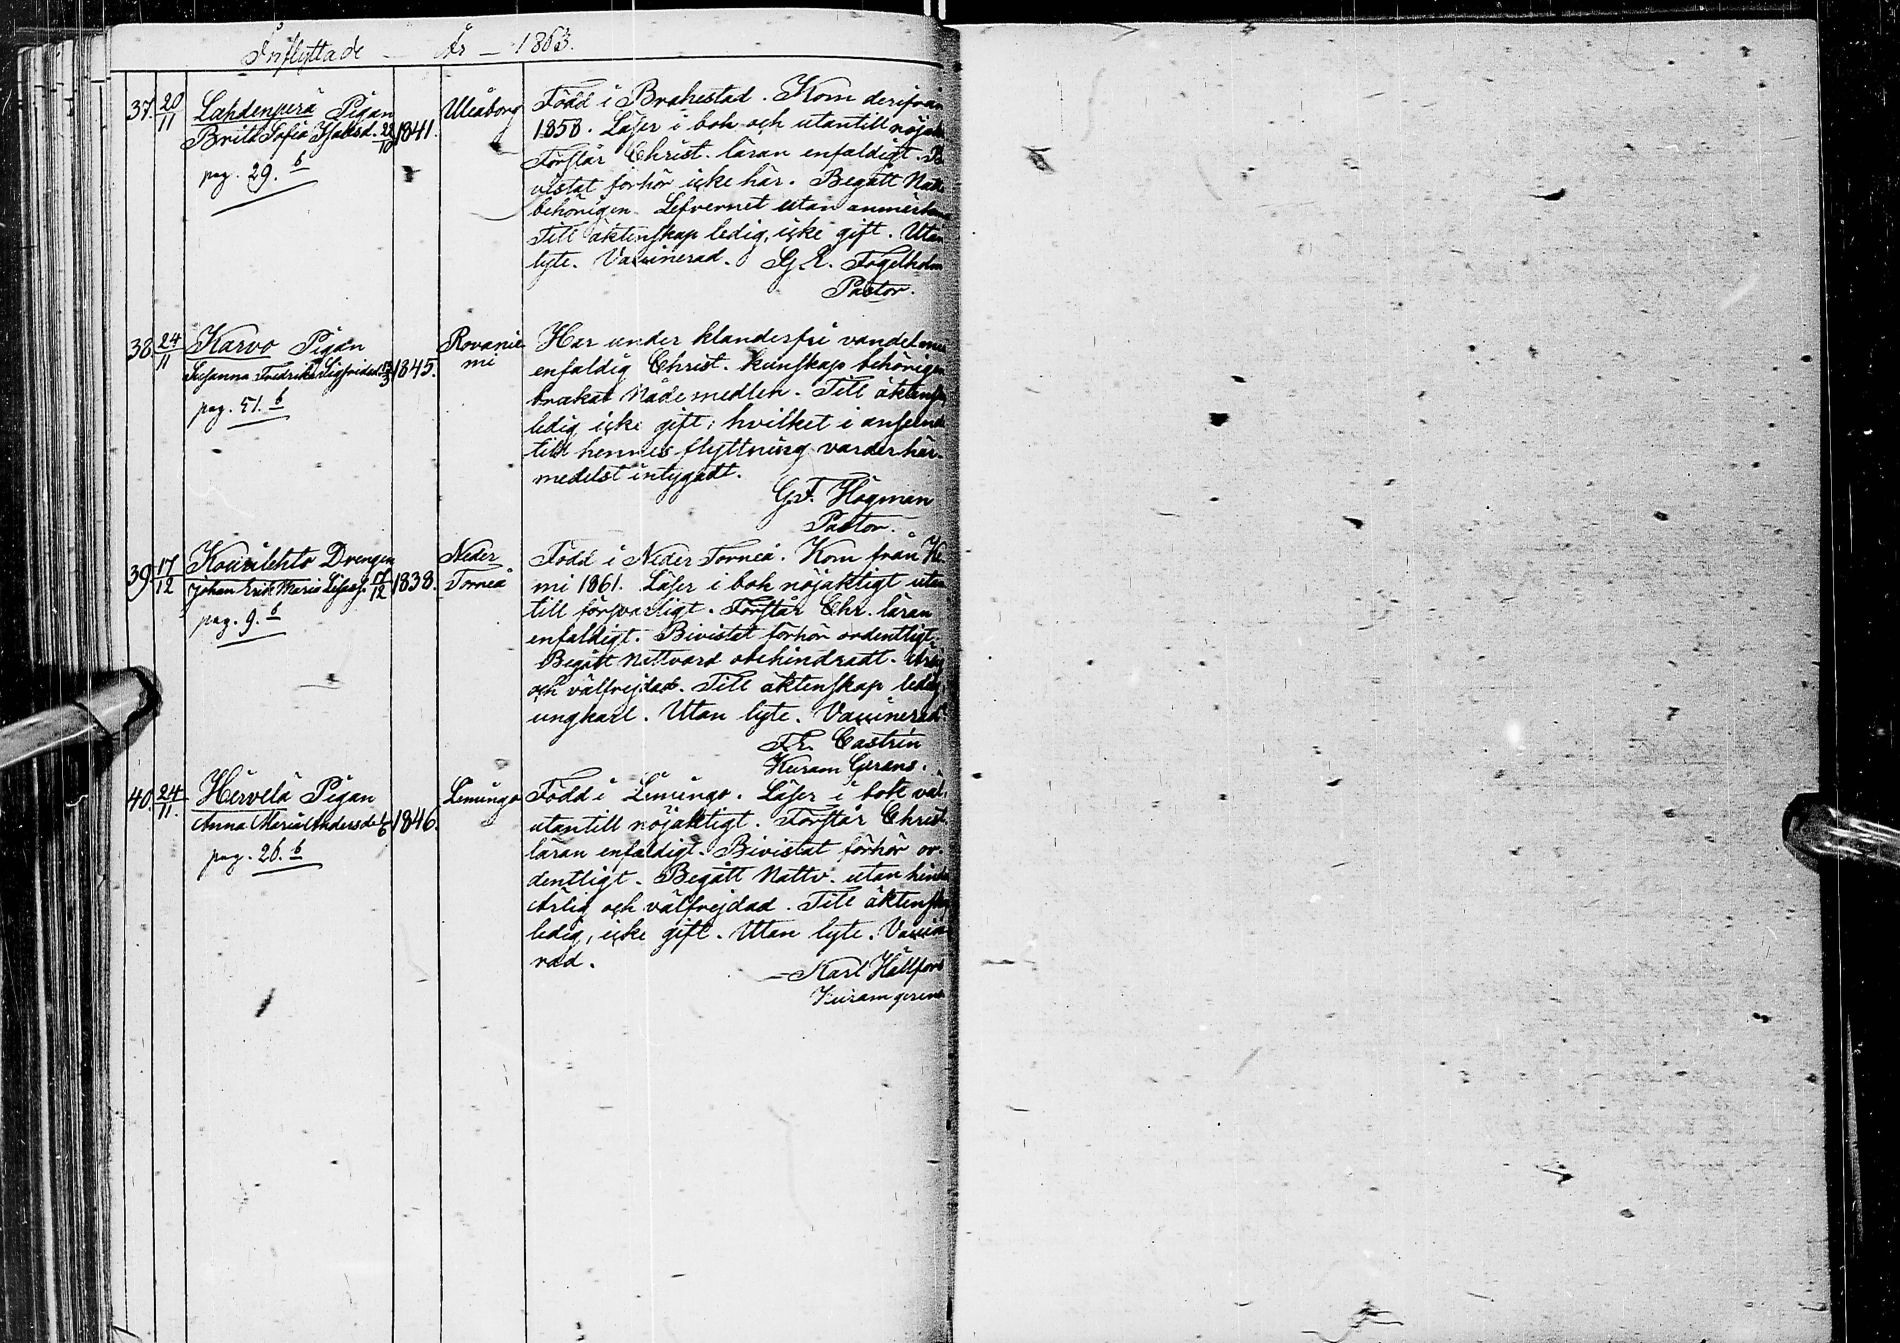 Inflyttade År 1863.
37. 20/11 Lahdenperä Pigan
Brita Sofia 22/10 1841.
pag. 29. b
Uleåborg
Född i Brahestad. Kom derifrån
1858. Läser i bok och utantill nöjakt
Förstår Christ. läran enfaldigt. B
vistat förhör icke här. Begått Natt
behörigen. Lefvernet utan anmärkn
Till äktenskap ledig, icke gift. Utan
lyte. Vaccinerad. Fogelholm
Pastor.
38. 24/11 Karvo Pigan
Susanna Fredrika Sigfridsd. 1845.
pag. 51. b
Rovanie
mi
Har under klanderfri vandel med
enfaldig Christ. kunskap behörigen
brukat Nådemedlen. Till äktensk
ledig icke gift; hvilket i anseend
till hennes flyttning varder här-
medelst intygadt.
G.F. Högman
Pastor.
39. 17/12 Drengen
Johan Erik 17/12 1838.
pag. 9. b
Neder
Torneå
Född i Neder Torneå. Kom från Ke
mi 1861. Läser i bok nöjaktigt utan
till försvarligt. Förstår Chr. läran
enfaldigt. Bivistat förhör ordentligt.
Begått Nattvard obehindradt. Ärlig
och välfrejdad. Till äktenskap ledig,
ungkarl. Utan lyte. Vaccinerad.
Fr. Castrén
Kyram Gerens.
40. 24/11. Hervelä Pigan
Anna Maria Andersd. 1846.
pag. 26. b
Limingo
Född i Limingo. Läser i bok väl,
utantill nöjaktigt. Förstår Christ.
läran enfaldigt. Bivistat förhör or-
dentligt. Begått Nattv. utan hinder
Ärlig och välfrejdad. Till äktensk
ledig, icke gift. Utan lyte. Vaccin
rad.
Karl Hällfors